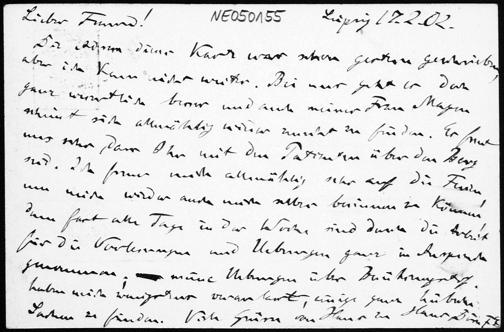 Lieber Freund! NE050155 Leipzig 17.2.02.
Die Adresse dieser Karte war schon gestern geschrieben,
aber ich kam nicht weiter. Bei uns geht es doch
ganz wesentlich besser und auch meiner Frau Magen
scheint sich allmählig wieder zurecht zu finden. Es freut
uns sehr, dass Ihr mit den Patienten über den Berg
seid. Ich freue mich allmählig sehr auf die Ferien
um mich wieder auch mich selber besinnen zu können!
denn fast alle Tage in der Woche sind durch die Arbeit
für die Vorlesungen und Uebungen ganz in Anspruch
genommen. — meine Uebungen über
haben mich wenigstens veranlasst, einige ganz hübsche
Sachen zu finden. Viele Grüsse von Haus zu Haus Dein